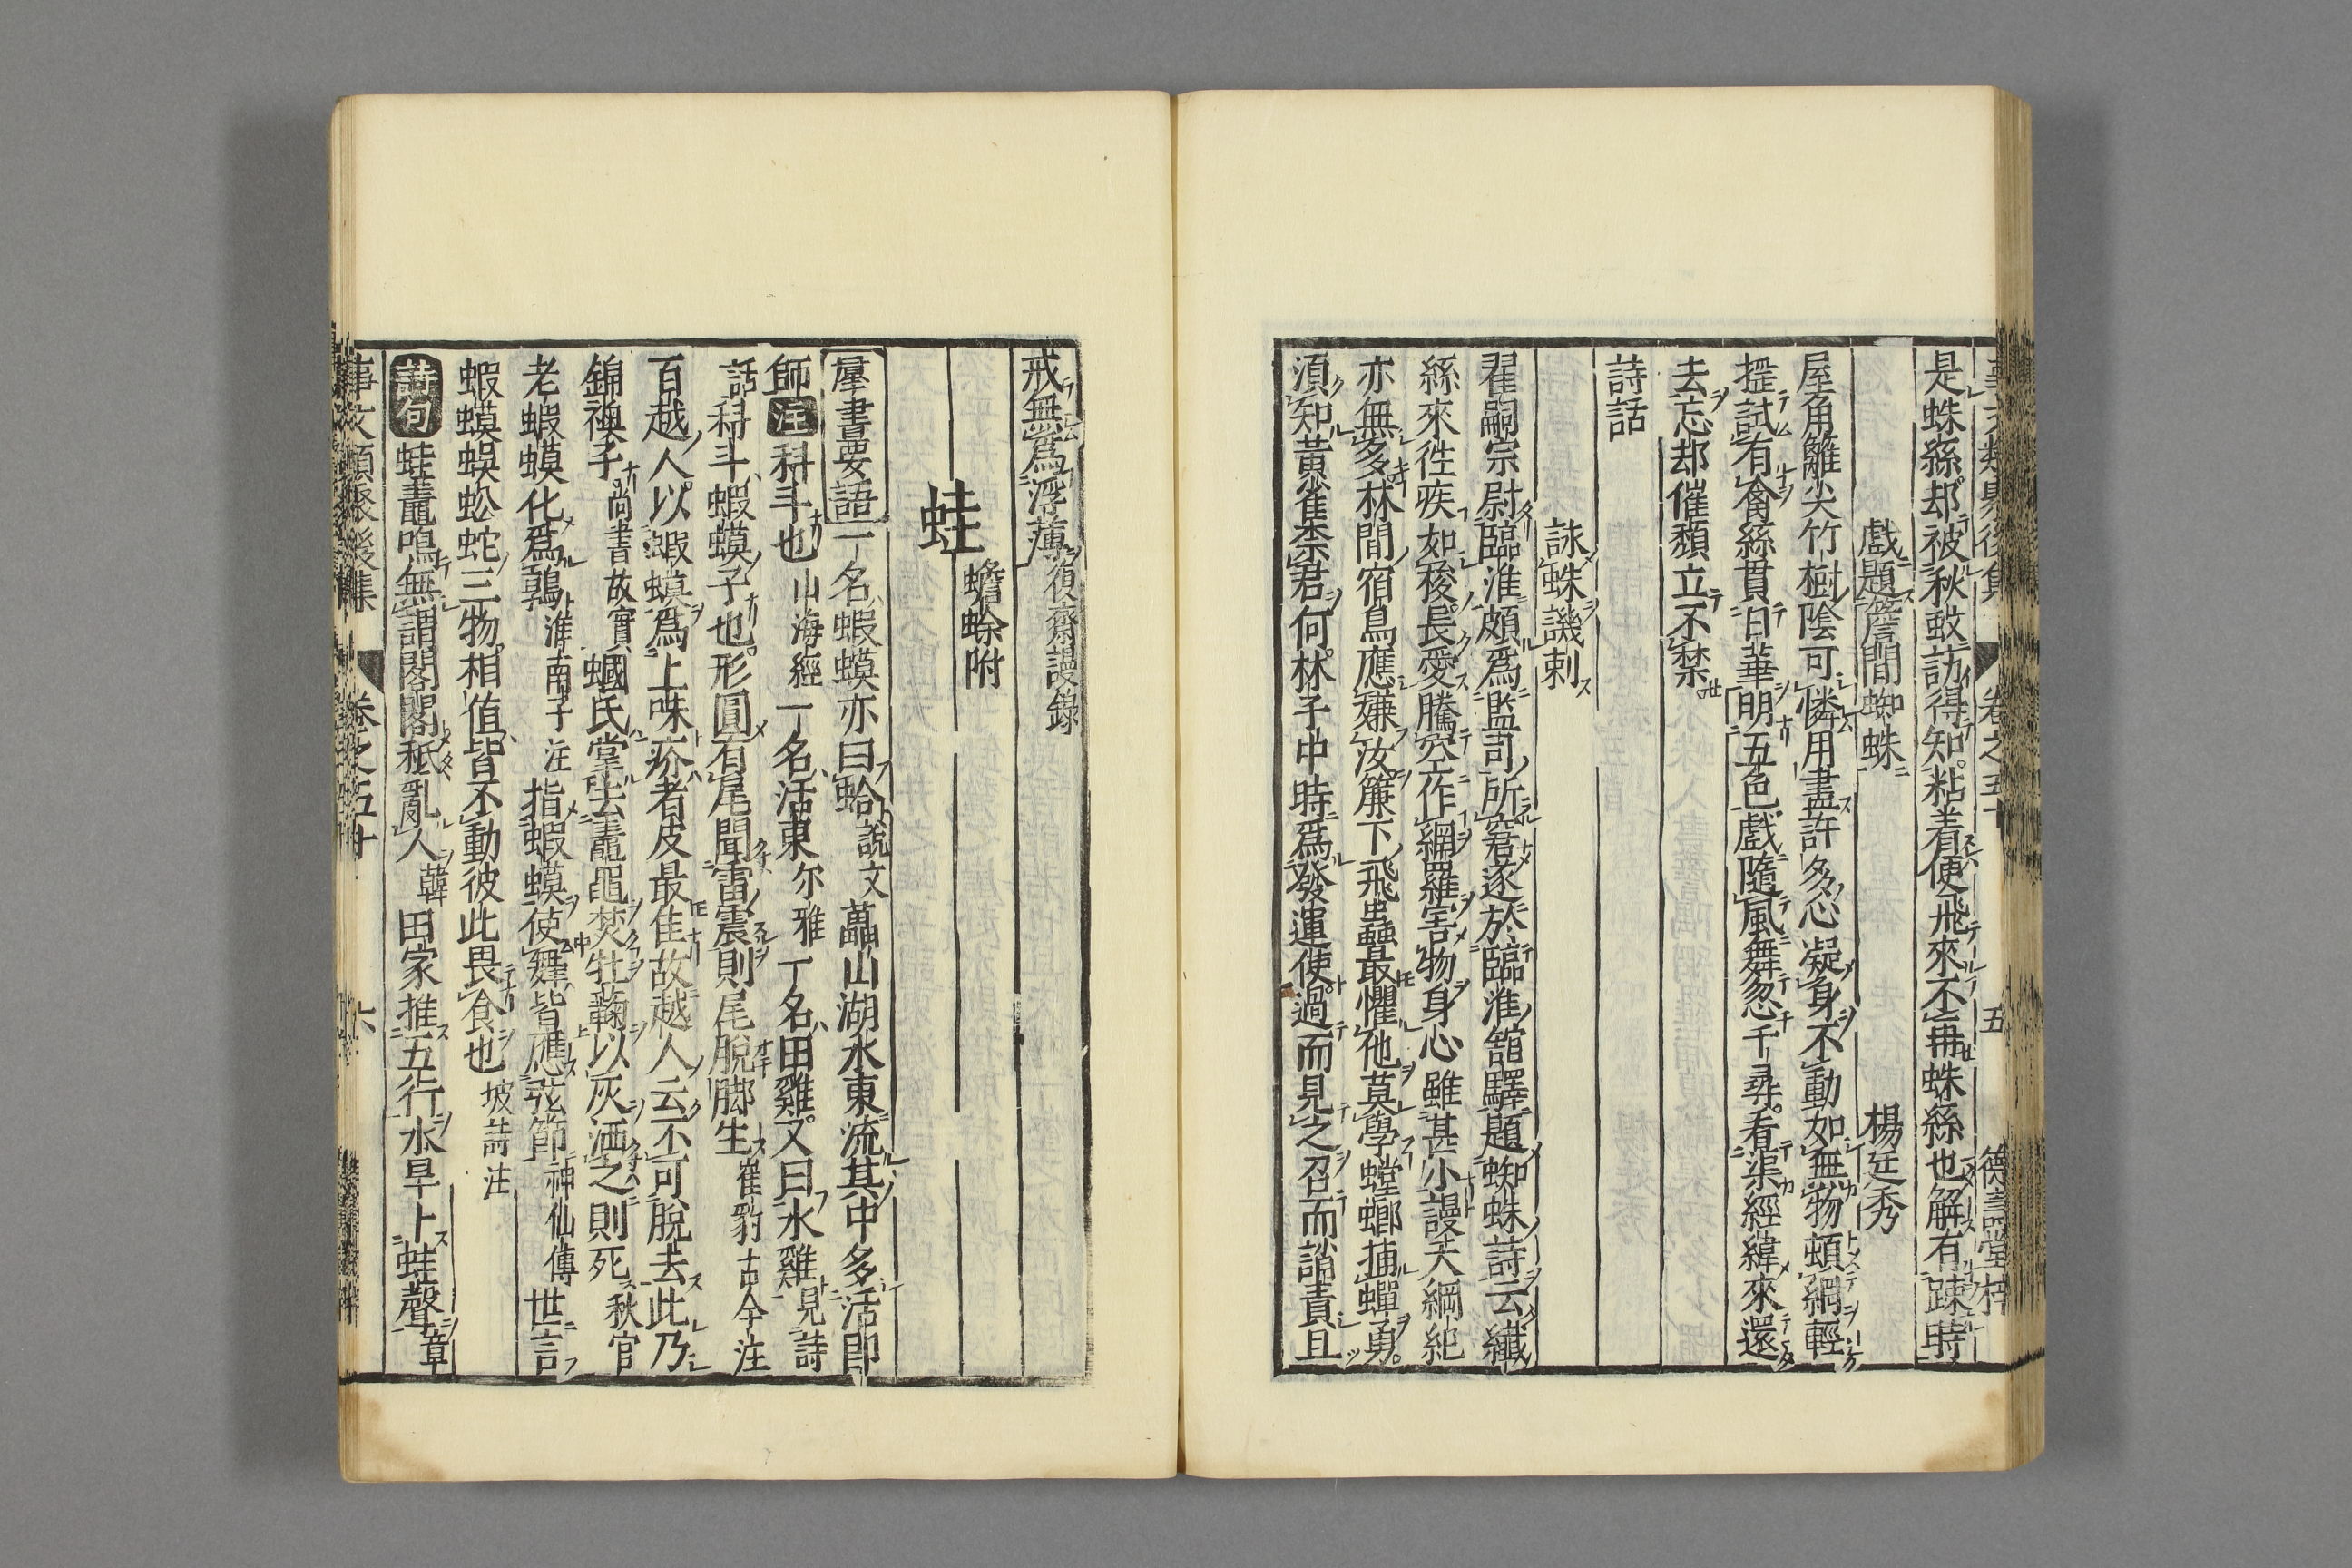 事文類聚後集 卷之五十 五 德壽堂梓
是蛛絲却被秋蚊訪得知粘着便飛來不再蛛絲也解有踈時
戲題簷間蜘蛛 楊廷秀
屋角籬尖竹樹陰可憐用盡許多心凝身不動如無物頓綱輕
提試有禽絲貫日華明五色戲隨風舞忽千尋看渠經緯來還
去忘却催頹立不禁
詩話
詠蛛譏刺
翟嗣宗尉臨淮頗爲監司所窘逐於臨淮舘驛題蜘蛛詩云纖
絲來徃疾如梭長愛騰空作網羅害物身心雖甚小謾天綱紀
亦無多林間宿鳥應嫌汝簾下飛蟲最懼他莫學螳螂捕蟬勇
須知黃雀柰君何林子中時爲發運使過而見之召而誚責且
戒無爲浮薄 復齋謾錄
蛙 蟾蜍附
羣書要語 一名蝦蟆亦曰蛤 說文 藟山湖水東流其中多活卽
師 注 科斗也 山海經 一名活東 尔雅 一名田雞又曰水雞 見詩
話 科斗蝦蟆子也形圓有尾聞雷震則尾脫脚生 崔豹古今注
百越人以蝦蟆爲上味疥者皮最佳故越人云不可脫去此乃
錦襖子 尚書故實 蟈氏掌去鼃黽焚牡蘜以灰洒之則死 秋官
老蝦蟆化爲鶉 淮南子注 指蝦蟆使舞皆應弦節 神仙傳 世言
蝦蟆蜈蚣蛇三物相值皆不動彼此畏食也 坡詩注
詩句 蛙鼃鳴無謂閣閣秪亂人 韓 田家推五行水旱卜蛙聲 章
事文類聚後集 卷之五十 六